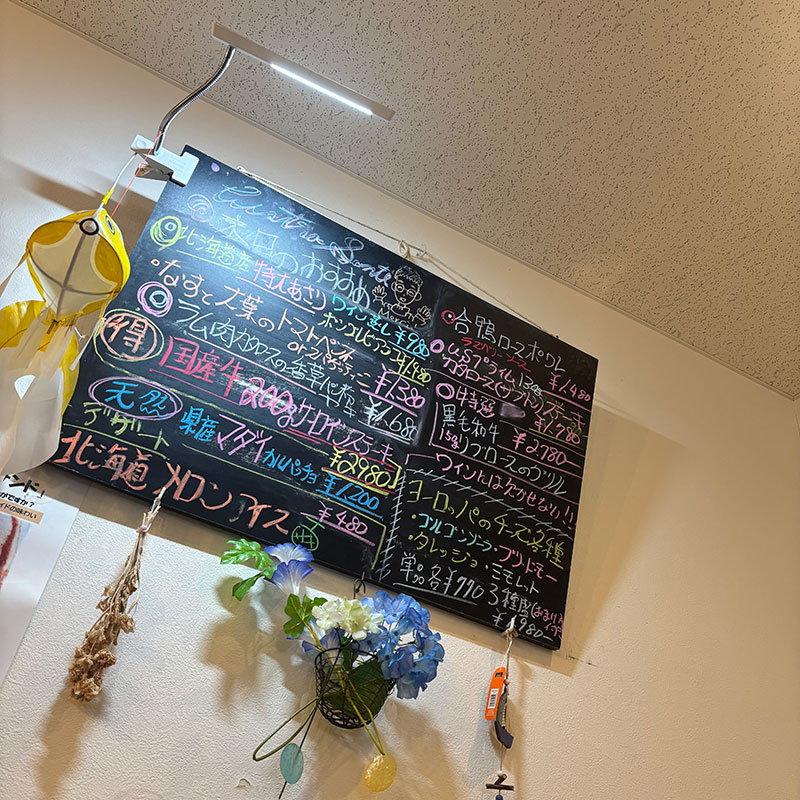 本日のおすすめ
Merci!
北海道産 特大あさり ワイン蒸し ¥980
ボンゴレビアンコ ¥1,480
なすと大葉のトマトペースト
¥1,380
ラム肉 香草パン粉 ¥1,680
得 国産牛 200g サロインステーキ
¥2980
天然 県産 マダイ カルパッチョ ¥1,200
デザート
北海道 メロンアイス ¥480
合鴨ロースポワレ
ラズベリーソース ¥1,480
U.Sプライム 130g
ステーキ
¥1,780
特選
黒毛和牛 ¥2,780
150g リブロースのグリル
ワインには欠かせない!!
ヨーロッパのチーズ各種
・ゴルゴンゾーラ・ブリドモー
・タレッジョ・ミモレット
単品 各¥770 3種盛
¥1,980